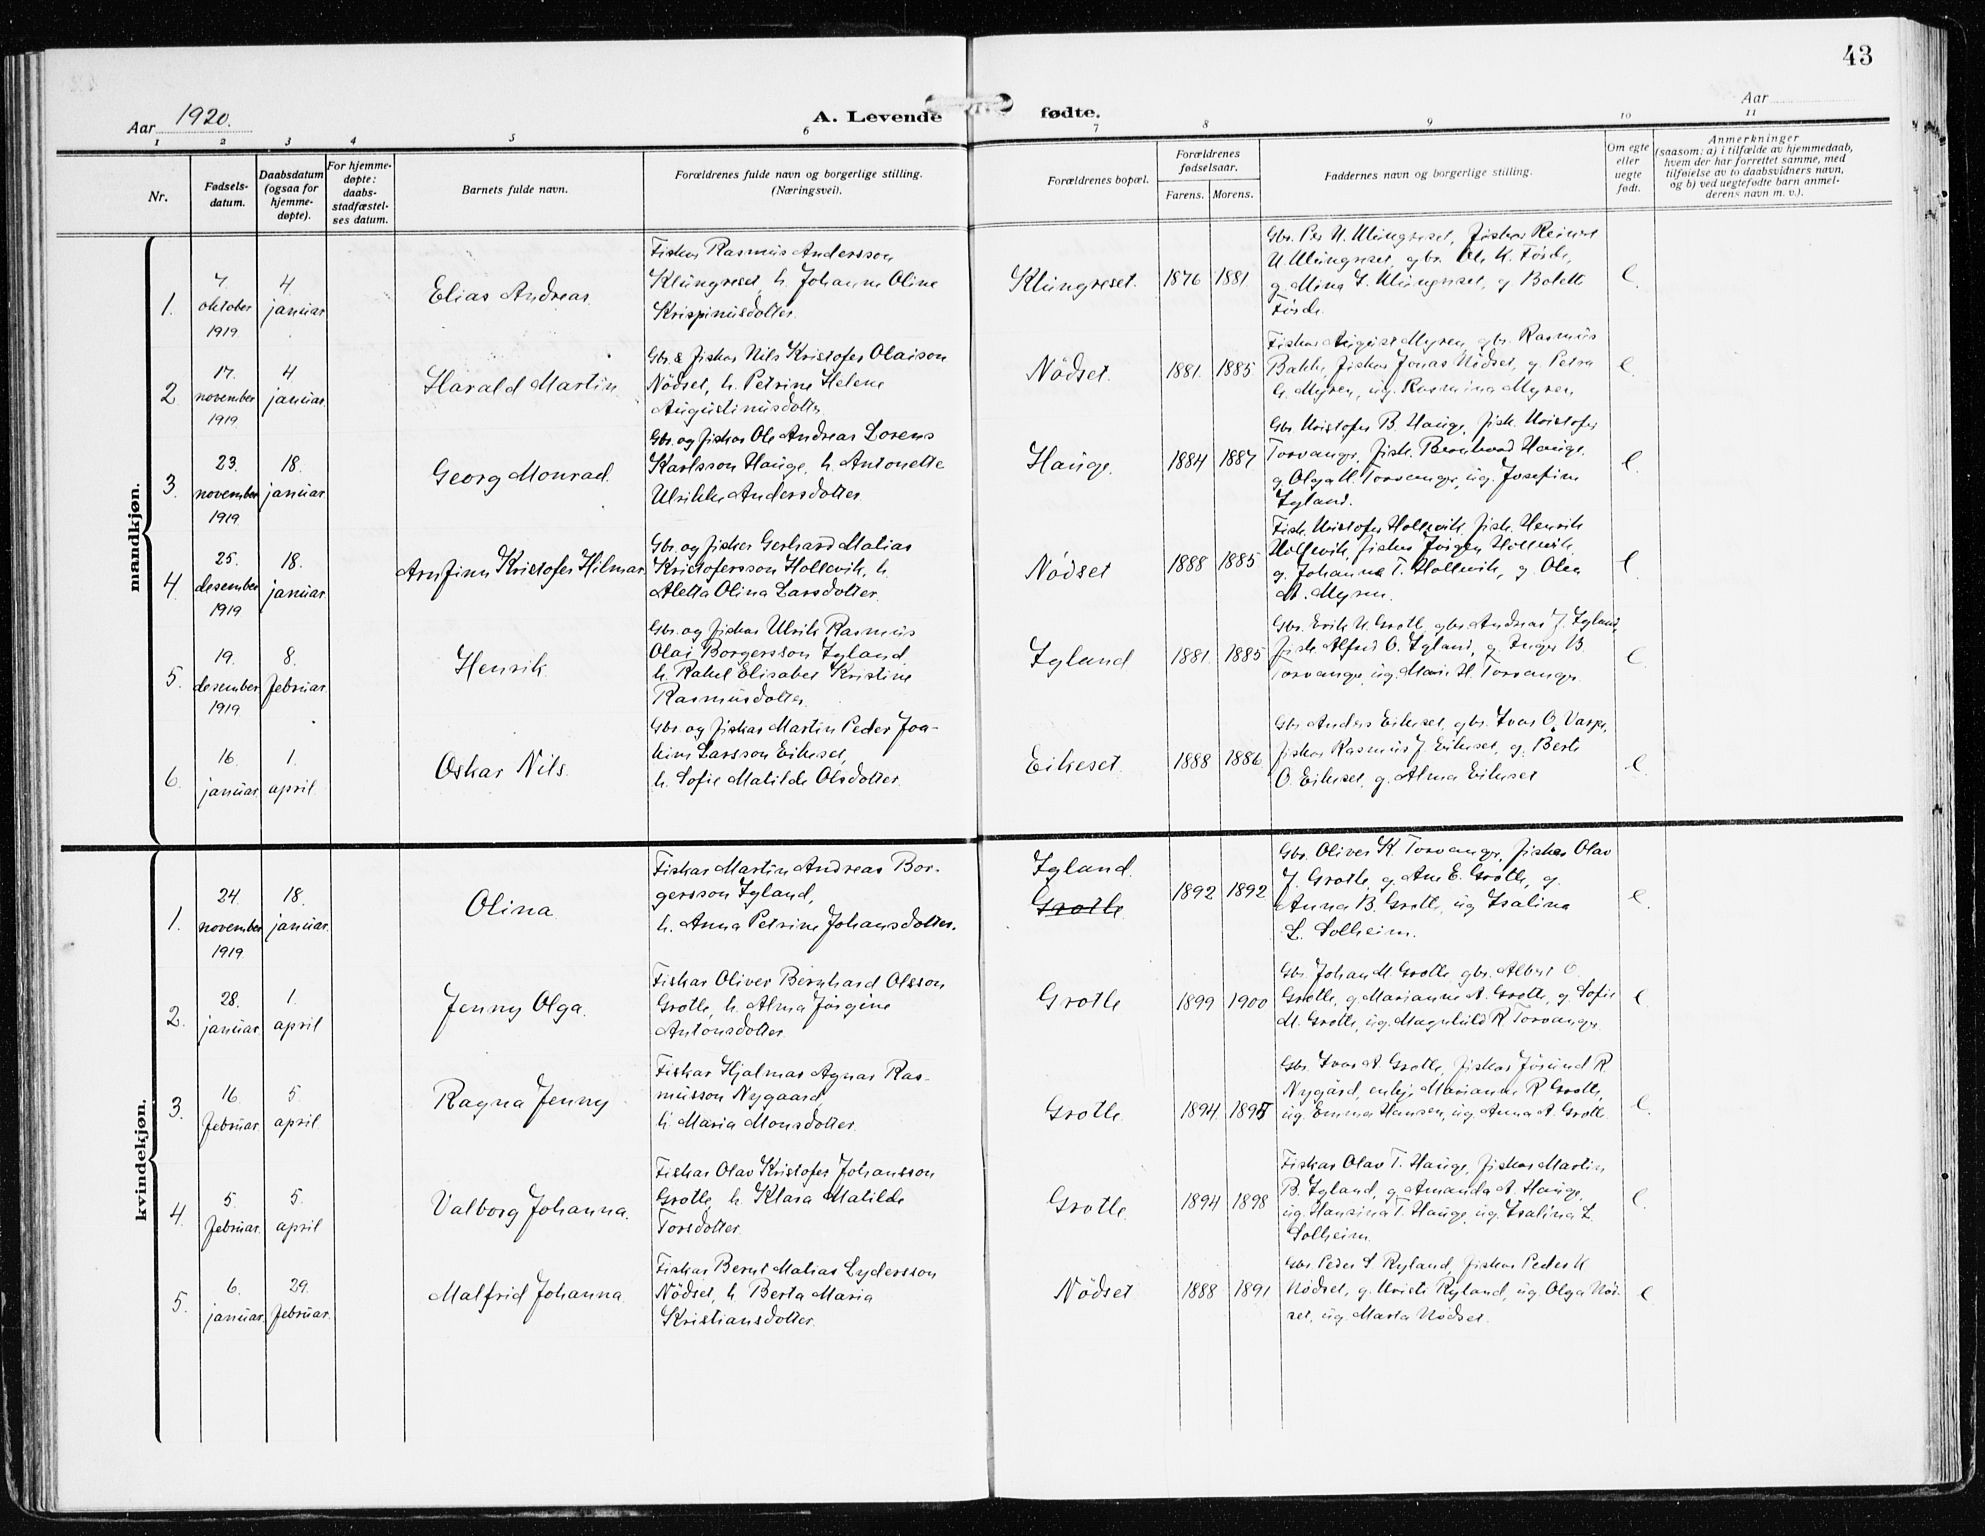 43
Aar 1920.
A. Levende fødte.
Aar
1 2 3 4 5 6 7 8 9 10 11
Nr.
Fødsels-
datum.
Daabsdatum
(ogsaa for
hjemme-
døpte).
For hjemme-
døpte:
daabs-
stadfæstel-
ses datum.
Barnets fulde navn.
Forældrenes fulde navn og borgerlige stilling.
(Næringsvei).
Forældrenes bopæl.
Forældrenes
fødselsaar.
Farens. Morens.
Faddernes navn og borgerlige stilling.
Om egte
eller
uegte
født.
Anmerkninger
(saasom: a) i tilfælde av hjemmedaab,
hvem der har forrettet samme, med
tilføielse av to daabsvidners navn,
og b) ved uegtefødte barn anmel-
derens navn m. v.).
mandkjøn.
1.
7.
oktober
1919
4
januar
Elias Andreas
Fiskar Rasmus Andersson
Klungreset, h. Johanne Oline
Krispinusdotter.
Klungreset.
1876 1881
Gbr. Per K. Klungreset, fiskar Reinert
K. Klungreset, gbr. Ole K. Förde,
g. Mina L. Klungreset, g. Bolette
Förde.
e.
2.
17.
november
1919
4
januar
Harald Martin
Gbr. & fiskar Nils Kristofer Olaison
Nödset, h. Petrine Helene
Augustinusdotter
Nödset.
1881. 1885
Fiskar August Myren, gbr. Rasmus
Bakke, fiskar Jonas Nödset, g. Petra
G. Myren, ug. Rasmina Myren
e.
3.
23.
november
1919
18.
januar
Georg Monrad.
Gbr. og fiskar Ole Andreas Lorens
Karlsson Hauge, h. Antonette
Ulrikke Andersdotter
Hauge.
1884 1887
Gbr. Kristofer B. Hauge, fisk. Kristofer
Torvanger, fisk. Bernhard Hauge,
g. Olga K. Torvanger, ug. Josefine
Igland.
e.
4.
25.
desember
1919
18.
januar
Arnfinn Kristofer Hilmar
Gbr. og fisker Gerhard Malias
Kristofersson Hollevik, h.
Aletta Olina Larsdotter.
Nödset
1888 1885
Fisk. Kristofer Hollevik, fisk. Henrik
Hollevik, fiskar Jörgen Hollevik,
g. Johanna T. Hollevik, g. Olea
M. Myren.
e.
5.
19.
desember
1919
8.
februar
Henrik
Gbr. og fiskar Ulrik Rasmus
Olai Borgersson Igland
h. Rakel Elisabet Kristine
Rasmusdotter
Igland
1881. 1885
Gbr. Erik K. Grotle, gbr. Andreas J. Igland,
fisk. Alfred O. Igland, g. Inger B.
Torvanger, ug. Marie H. Torvanger.
e.
6.
16.
januar
1.
april
Oskar Nils
Gbr. og fiskar Martin Peder Joa-
kim Larsson Eikeset,
h. Sofie Matilde Olsdotter
Eikeset.
1888 1886
Gbr. Anders Eikeset, gbr. Ivar O. Varpe,
fiskar Rasmus J. Eikeset, g. Berte
O. Eikeset, g. Alma Eikeset
e.
kvindekjøn.
1.
24.
november
1919
18.
januar
Olina
Fiskar Martin Andreas Bor-
gersson Igland,
h. Anna Petrine Johansdotter.
Igland.
Grotle.
1892 1892
Gbr. Oliver K. Torvanger, fiskar Olav
J. Grotle, g. Ane E. Grotle, g.
Anna B. Grotle, ug Isalina
L. Solheim.
e.
2.
28.
januar
1.
april
Jenny Olga.
Fiskar Oliver Bernhard Olsson
Grotle, h. Alma Jörgine
Antonsdotter
Grotle
1899 1900
Gbr. Johan M. Grotle, gbr. Albert O.
Grotle, g. Marianne A. Grotle, g. Sofie
M. Grotle, ug. Magnhild R. Torvanger
e.
3.
16
februar
5.
april.
Ragna Jenny
Fiskar Hjalmar Agnar Ras-
musson Nygaard
h. Maria Monsdotter
Grotle
1894 1895
Gbr. Ivar A. Grotle, fiskar Jörund R
Nygård, enkje Marianne R Grotle,
ug. Emma Hansen, ug. Anna A. Grotle
e.
4.
5
februar.
5.
april
Valborg Johanna.
Fiskar Olav Kristofer Johansson
Grotle, h. Klara Matilde
Torsdotter
Grotle
1894 1898
Fiskar Olav T. Hauge, fiskar Martin
B. Igland, g. Amanda A. Hauge,
ug. Hansina T. Hauge, ug. Isalina L.
Solheim.
e.
5.
6.
januar.
29.
februar.
Malfrid Johanna
Fiskar Bernt Matias Lydersson
Nödset, h. Berta Maria
Kristiansdotter
Nödset
1888 1891
Gbr. Peder S. Ryland, fiskar Peder K
Nödset, g. Kristi Ryland, ug. Olga Nöd-
set, ug. Marta Nödset.
e.